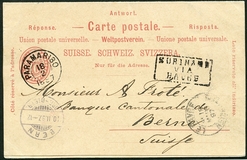 Antwort.
Réponse. Carte postale. Risposta.
Union postale universelle. — Weltpostverein. — Unione postale universale.
SUISSE. SCHWEIZ. SVIZZERA.
Nur für die Adresse.
PARAMARIBO
SURINAME
VIA
HAVRE
Monsieur A.
Banque Cantonale de
Berne
Suisse
BERN